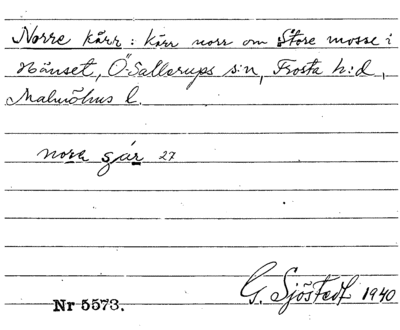 Norre kärr": kärr norr om Store mosse i
Hänset, Ö. Sallerups s:n, Frosta h:d,
Malmöhus l.
nora gár 27
G. Sjöstedt 1940
Nr 5573.